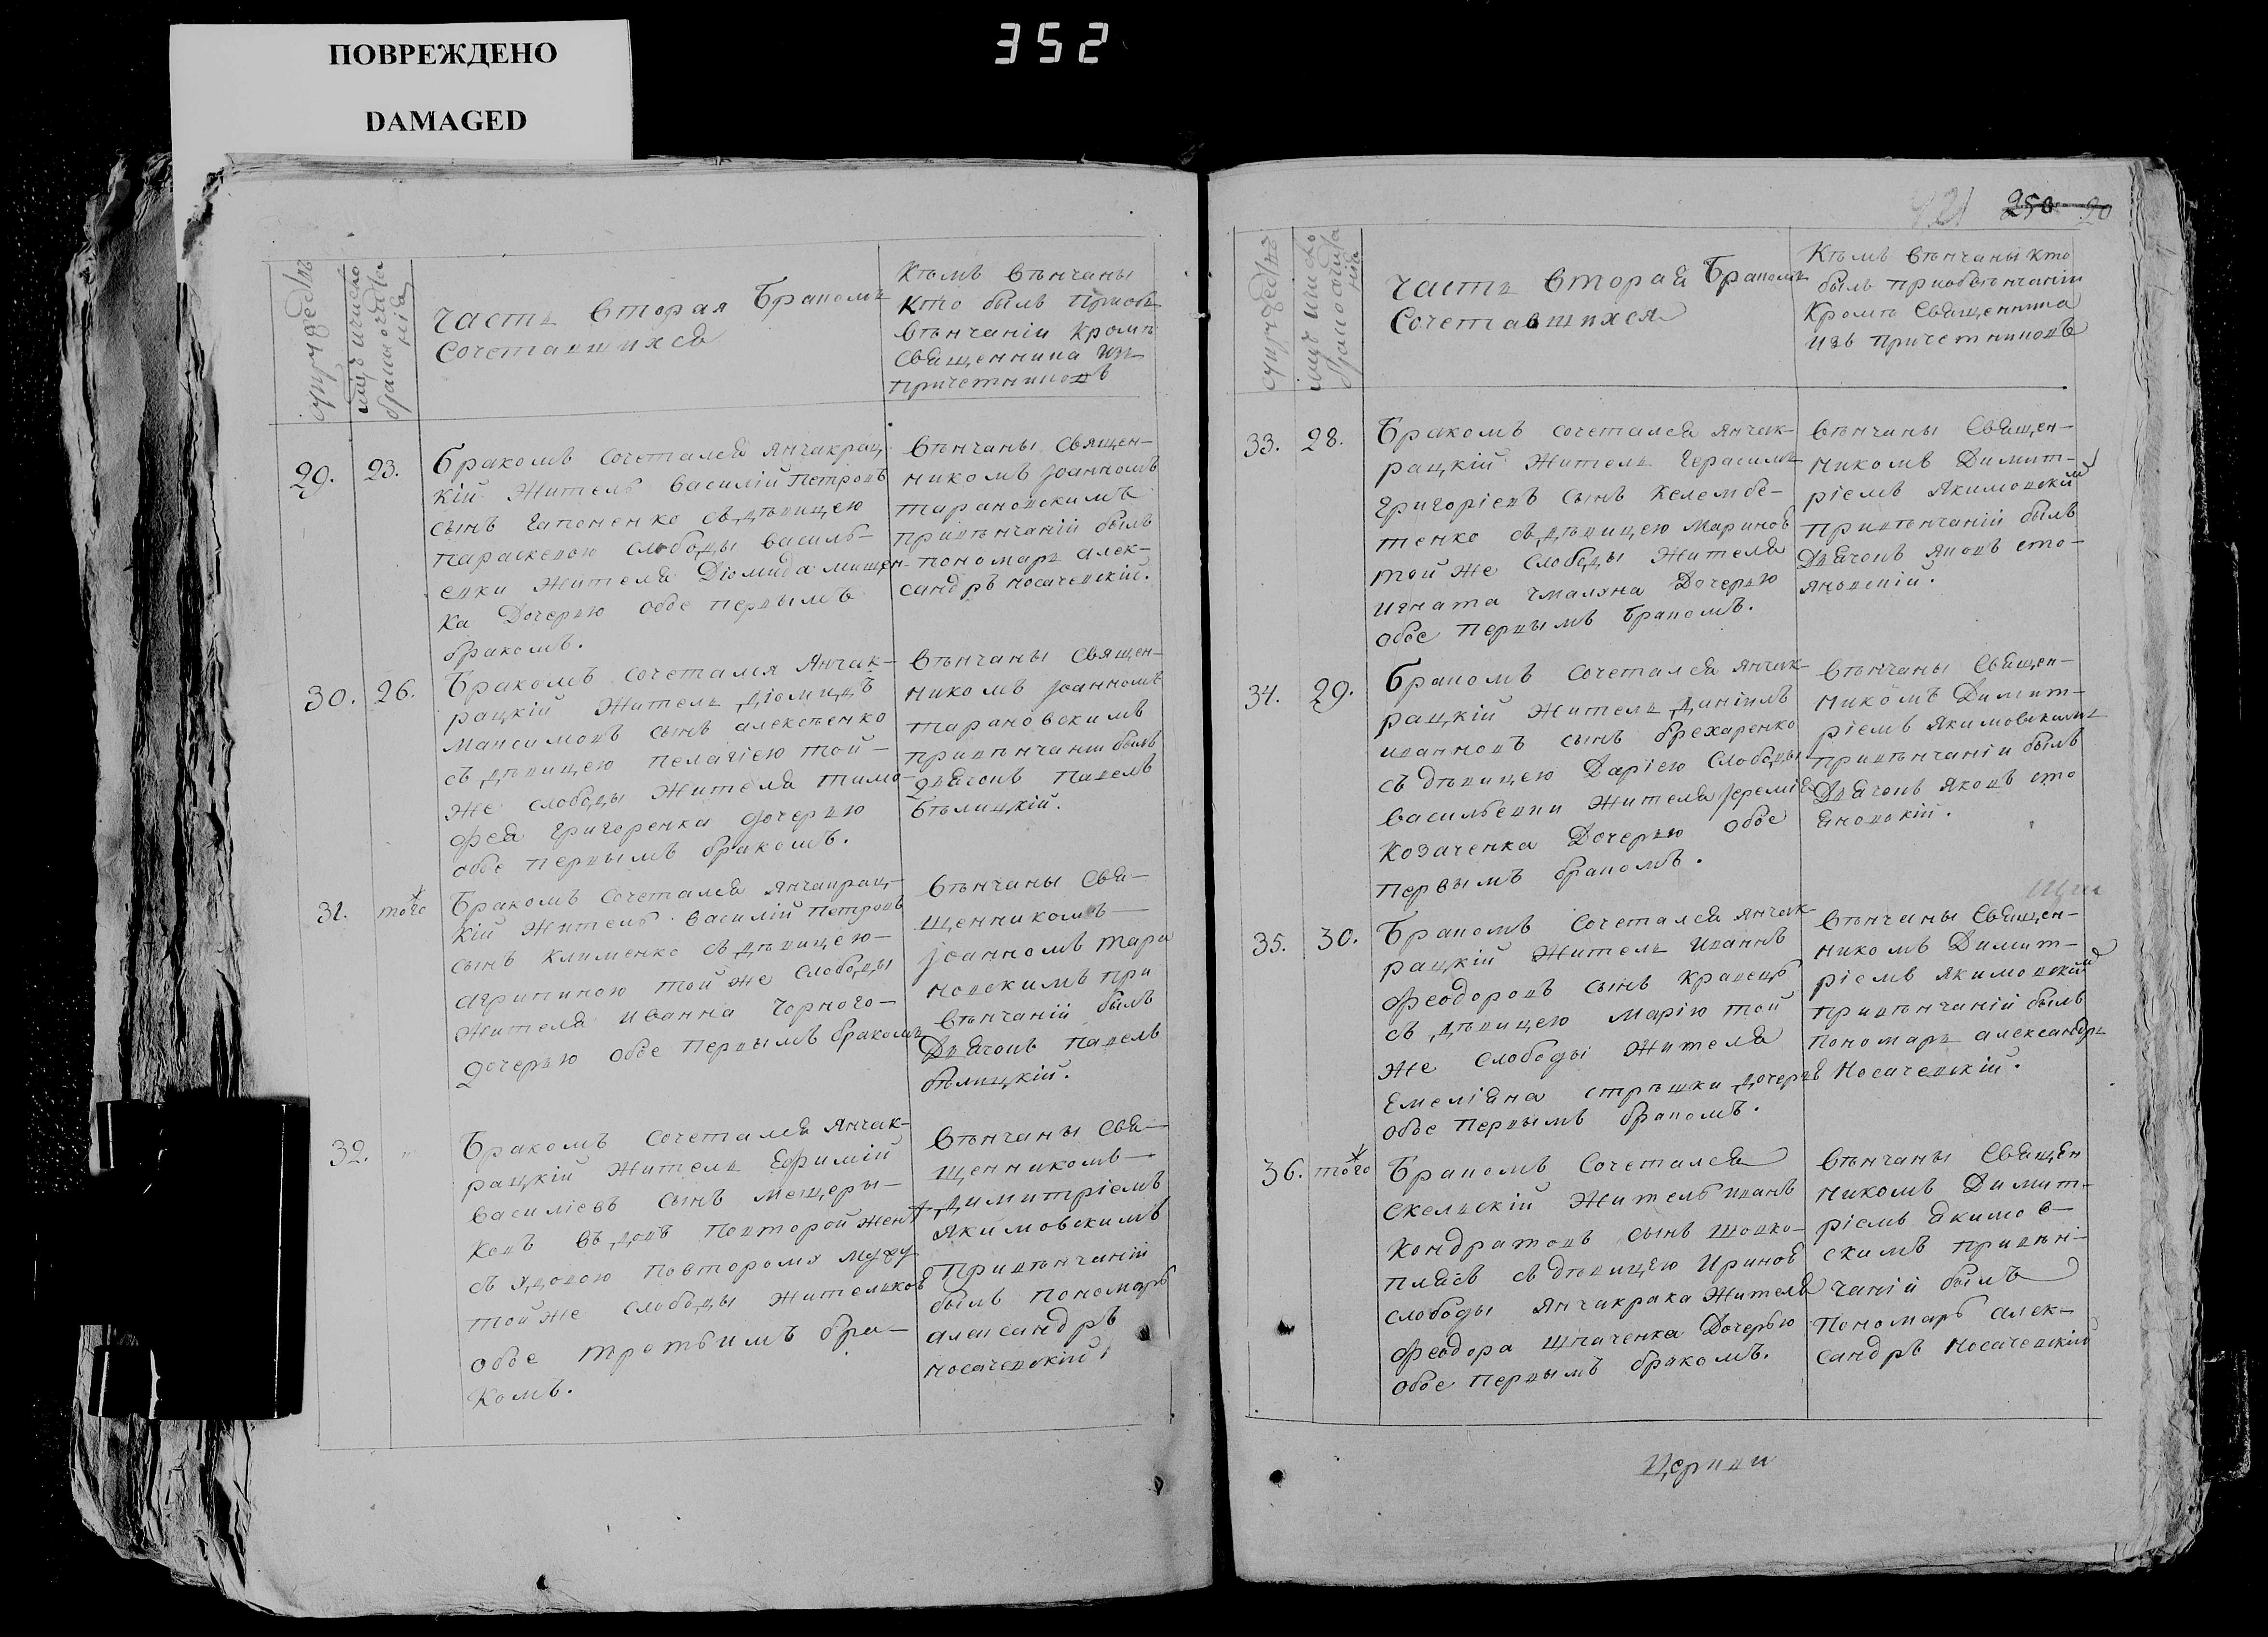 ПОВРЕЖДЕНО
DAMAGED
352
часть вторая Бракомъ
Сочетавшихся
Кѣмъ вѣнчаны
кто былъ приобѣ
вѣнчаніи Кромѣ
Священника изъ
причетниковъ
29. 23.
Бракомъ сочетался Янчакрац-
кій Житель Василій Петровъ
сынъ Гапоненко съ дѣвицею
Параскевою слободы Василь-
евки Жителя Діомида мищен-
ка Дочерью обое первымъ
бракомъ.
вѣнчаны Священ-
никомъ Іоанномъ
тарановскимъ
привѣнчаніи былъ
пономарь алек-
сандръ носачевскій.
30. 26.
Бракомъ сочетался Янчак-
рацкій Житель Діомидъ
Максимовъ сынъ алексѣенко
съ дѣвицею пелагіею той-
же слободы Жителя тимо-
фея григоренка дочерью
обое первымъ бракомъ.
вѣнчаны Священ-
никомъ Іоанномъ
тарановскимъ
привѣнчаніи былъ
дьячокъ павелъ
бѣлицкій.
31. того ж
Бракомъ Сочетался Янчакрац-
кій Житель Василій Петровъ
сынъ Клименко съ дѣвицею-
агрипиною той же слободы
Жителя иванна Чорного-
дочерью обое первымъ бракомъ
вѣнчаны Свя-
щенникомъ-
Іоанномъ тара
новскимъ при
вѣнчаній былъ
Дьячокъ павелъ
бѣлицкій.
32. "
Бракомъ сочетался Янчак-
рацкій Житель Ефимій
василіевъ сынъ мещеры-
ковъ вдовъ повторой женѣ
съ вдовою повторомъ мужу
той же слободы жителькою
обое третьимъ бра-
комъ.
вѣнчаны Свя-
щенникомъ-
Димитріемъ
Якимовскимъ
привѣнчаніи
былъ пономарь
александръ
носачевскій.
250 20
часть вторая Бракомъ
Сочетавшихся
Кѣмъ вѣнчаны кто
былъ приобвѣнчаніи
Кромѣ Священника
изъ причетниковъ
33. 28.
Бракомъ сочетался Янчак-
рацкій Житель Герасимъ
григоріевъ сынъ келембе-
тенко съ дѣвицею Мариною
той же слободы Жителя
игната чмаляна Дочерью
обое первымъ бракомъ.
вѣнчаны Священ-
никомъ Димит-
ріемъ Якимовским
привѣнчаній былъ
Дьячокъ яковъ сто-
яновскій.
34. 29.
Бракомъ Сочетался Янчак-
рацкій Житель Даніилъ
иванновъ сынъ брехаренко
съ дѣвицею Даріею слободы
васильевки жителя Іереміи
Козаченка Дочерью обое
первымъ бракомъ.
вѣнчаны Священ-
никомъ Димит-
ріемъ Якимовскимъ
привѣнчаніи былъ
Дьячокъ яковъ сто
яновскій.
35. 30.
Бракомъ Сочетался Янчак
рацкій Житель Иваннъ
Феодоровъ сынъ кравецъ
съ дѣвицею марію той
же слободы жителя
Емеліана стрѣшки дочерью
обое первымъ бракомъ.
вѣнчаны Священ-
никомъ Димит-
ріемъ Якимовским
привѣнчаній былъ
пономарь александръ
Носачевскій.
36. того ж
Бракомъ Сочетался
скельскій житель иванъ
Кондратовъ сынъ шовко-
плясъ съ дѣвицею Ириною
слободы Янчакрака Жителя
Феодора шпаченка Дочерью
обое первымъ бракомъ.
вѣнчаны Священ
никомъ Димит-
ріемъ Якимов-
скимъ привѣн-
чаній былъ
пономарь алек-
сандръ носачевскій
Церкви